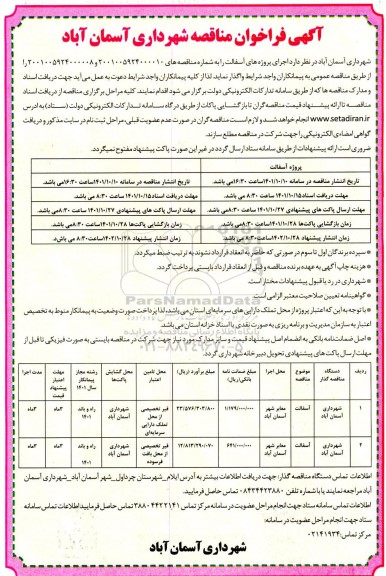 آگهی فراخوان مناقصه شهرداری آسمان آباد
شهرداری آسمان آباد در نظر دارد اجرای پروژه های آسفالت را به شماره مناقصه های ۲۰۰۱۰۰۵۹۲۴۰۰۰۰۱۰ و ۲۰۰۱۰۰۵۹۲۴۰۰۰۰۰۸ را
از طریق مناقصه عمومی به پیمانکاران واجد شرایط واگذار نماید. لذا از کلیه پیمانکاران واجد شرایط دعوت به عمل می آید جهت دریافت اسناد
و مدارک مناقصه ها که از طریق سامانه تدارکات الکترونیکی دولت برگزار می شود اقدام نمایند. کلیه مراحل برگزاری مناقصه از دریافت اسناد
مناقصه تا ارائه پیشنهاد قیمت مناقصه گران تا بازگشایی پاکات از طریق درگاه سامانه تدارکات الکترونیکی دولت (ستاد) به آدرس
www.setadiran.ir انجام خواهد شد و لازم است مناقصه گران در صورت عدم عضویت قبلی، مراحل ثبت نام در سایت مذکور و دریافت
گواهی امضای الکترونیکی را جهت شرکت در مناقصه مطلع سازند.
ضروری است ارائه پیشنهادات از طریق سامانه ستاد ارسال گردد در غیر این صورت پاکت پیشنهاد مفتوح نمیگردد.
پروژه آسفالت
تاریخ انتشار مناقصه در سامانه ۱۴۰۱/۱۰/۱۰ ساعت ۱۶:۳۰ می باشد. تاریخ انتشار مناقصه در سامانه ۱۴۰۱/۱۰/۱۰ ساعت ۱۶:۳۰ می باشد.
مهلت دریافت اسناد ۱۴۰۱/۱۰/۱۵ ساعت ۸:۳۰ می باشد. مهلت دریافت اسناد ۱۴۰۱/۱۰/۱۵ ساعت ۸:۳۰ می باشد.
مهلت ارسال پاکت های پیشنهادی ۱۴۰۱/۱۰/۲۷ ساعت ۸:۳۰ می باشد. مهلت ارسال پاکت های پیشنهادی ۱۴۰۱/۱۰/۲۷ ساعت ۸:۳۰ می باشد.
زمان بازگشایی پاکت‌ها ۱۴۰۱/۱۰/۲۸ ساعت ۸:۳۰ می باشد. زمان بازگشایی پاکت‌ها ۱۴۰۱/۱۰/۲۸ ساعت ۸:۳۰ می باشد.
زمان انتشار پیشنهاد ساعت ۸:۳۰ می باشد. زمان انتشار پیشنهاد ساعت ۸:۳۰ می باشد.
*سپرده برندگان اول تا سوم در صورتی که حاضر به انعقاد قرارداد نشوند به ترتیب ضبط میگردد.
*هزینه چاپ آگهی به عهده برنده مناقصه و قبل از انعقاد قرارداد بایستی پرداخت گردد.
*شهرداری در رد یا قبول پیشنهادات مختار است.
*گواهینامه تعیین صلاحیت معتبر الزامی است.
*با توجه به این که اعتبار پروژه از محل تملک دارایی های سرمایه‌ای استان می باشد، لذا پرداخت صورت وضعیت به پیمانکار منوط به تخصیص
اعتبار به سازمان مدیریت و برنامه ریزی به صورت نقدی یا اسناد خزانه استان می باشد.
*اصل ضمانت نامه بانکی به انضمام اصل پیشنهاد قیمت و سایر مدارک مورد نیاز جهت شرکت در مناقصه بایستی به صورت فیزیکی تا قبل از
مهلت ارسال پاکت های پیشنهادی تحویل دبیرخانه شهرداری گردد.
ردیف دستگاه مناقصه گذار موضوع مناقصه محل اجرا مبلغ ضمانت نامه بانکی (ریال) مبلغ برآورد (ریال) محل تامین اعتبار محل گشایش پاکت‌ها رشته مجاز پیمانکار سال ۱۴۰۱ مهلت اعتبار قیمت مدت اجرا
۱ شهرداری آسمان آباد آسفالت معابر شهر آسمان آباد ۱/۱۷۹/۰۰۰/۰۰۰ ۲۳/۵۷۶/۲۰۳/۸۰۰ غیر تخصیصی از محل تملک دارایی سرمایه‌ای شهرداری آسمان آباد راه و باند ۱۴۰۱ ۳ماه ۳ماه
۲ شهرداری آسمان آباد آسفالت معابر شهر آسمان آباد ۶۴۱/۰۰۰/۰۰۰ ۱۲/۸۱۳/۲۹۰/۰۷۰ غیر تخصیصی از محل بافت فرسوده شهرداری آسمان آباد راه و باند ۱۴۰۱ ۳ماه ۳ماه
اطلاعات تماس دستگاه مناقصه گذار: جهت دریافت اطلاعات بیشتر به آدرس ایلام_شهرستان چرداول_شهر آسمان آباد_شهرداری آسمان
آباد مراجعه نمایند یا با شماره تلفن ۰۸۴۳۴۴۲۳۸۸۰ تماس حاصل فرمایید.
اطلاعات تماس سامانه ستاد جهت انجام مراحل عضویت در سامانه مرکز تماس تماس حاصل فرمایید اطلاعات تماس سامانه
ستاد جهت انجام مراحل عضویت در سامانه:
مرکز تماس ۰۲۱۴۱۹۳۴
شهرداری آسمان آباد
ParsNamadData
۰۲۱-۸۸۳۴۹۶۷۰-۵